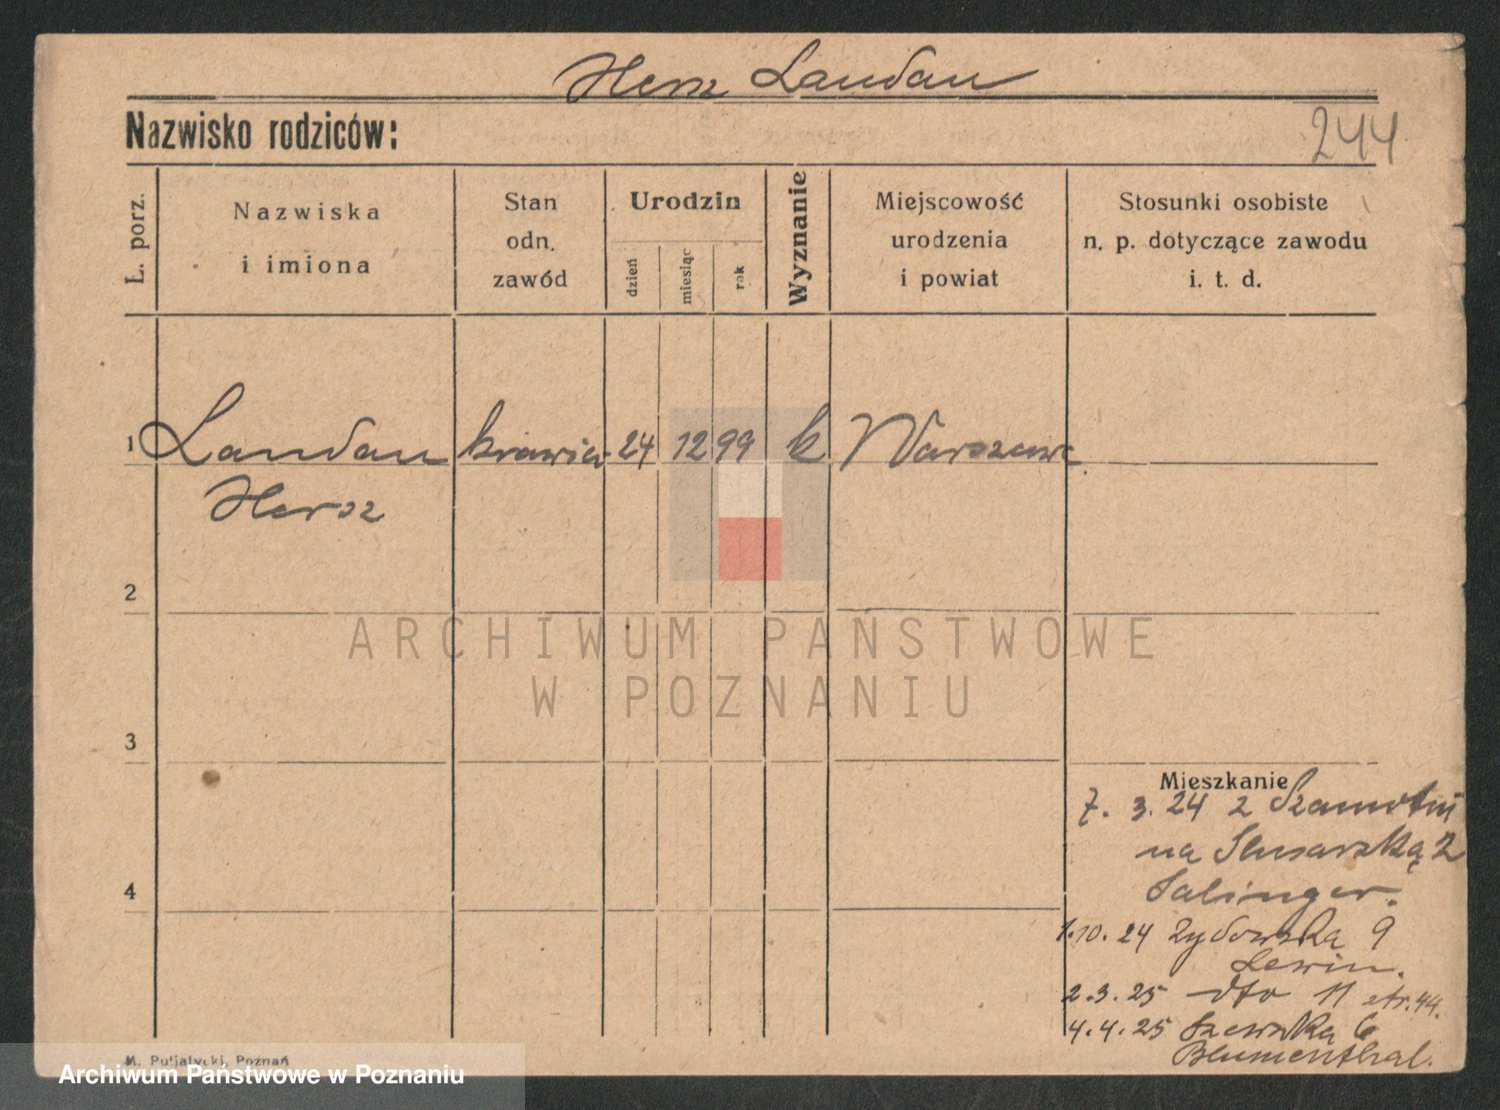 Hersz Landau
Nazwisko rodziców:
244
L. porz.
Nazwiska
i imiona
Stan
odn.
zawód
Urodzin
dzień
miesiąc
rok
Wyznanie
Miejscowość
urodzenia
i powiat
Stosunki osobiste
n. p. dotyczące zawodu
i. t. d.
1 Landau krawiec 24 12 99 Warszawa
Hersz
2
ARCHIWUM PAŃSTWOWE
W POZNANIU
3
Mieszkanie
7. 3. 24 z Szamotuł
na Slusarską 2
Salinger.
4
1.10. 24 Zydowską 9
Lewin.
2.3. 25 dto 11 str. 44.
4.4. 25 Szewską 6
Blumenthal.
M. Putiatycki, Poznań
Archiwum Państwowe w Poznaniu